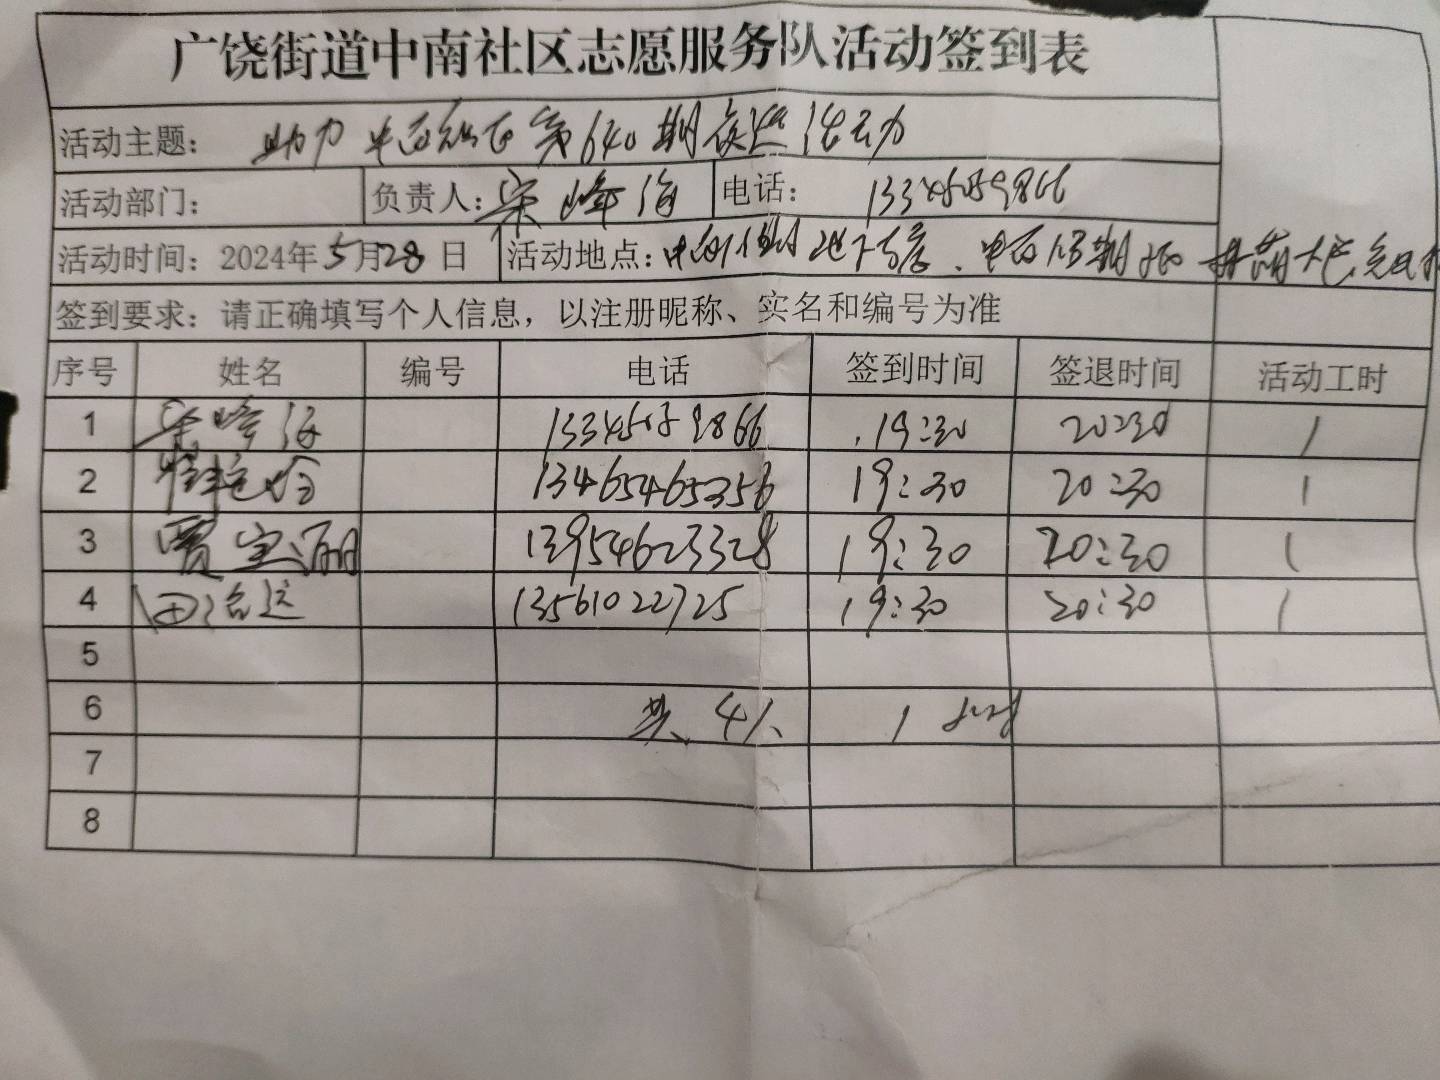 广饶街道中南社区志愿服务队活动签到表
活动主题： 助力 第640期夜巡活动
活动部门： 负责人：宋峰海 电话：
活动时间：2024年5月28日 活动地点：
签到要求：请正确填写个人信息，以注册昵称、实名和编号为准
序号 姓名 编号 电话 签到时间 签退时间 活动工时
1 宋峰海 19:30 20:30 1
2 13465465356 19:30 20:30 1
3 贾宝丽 13954623328 19:30 20:30 1
4 田治运 13561022725 19:30 20:30 1
5
6 共4人 1小时
7
8